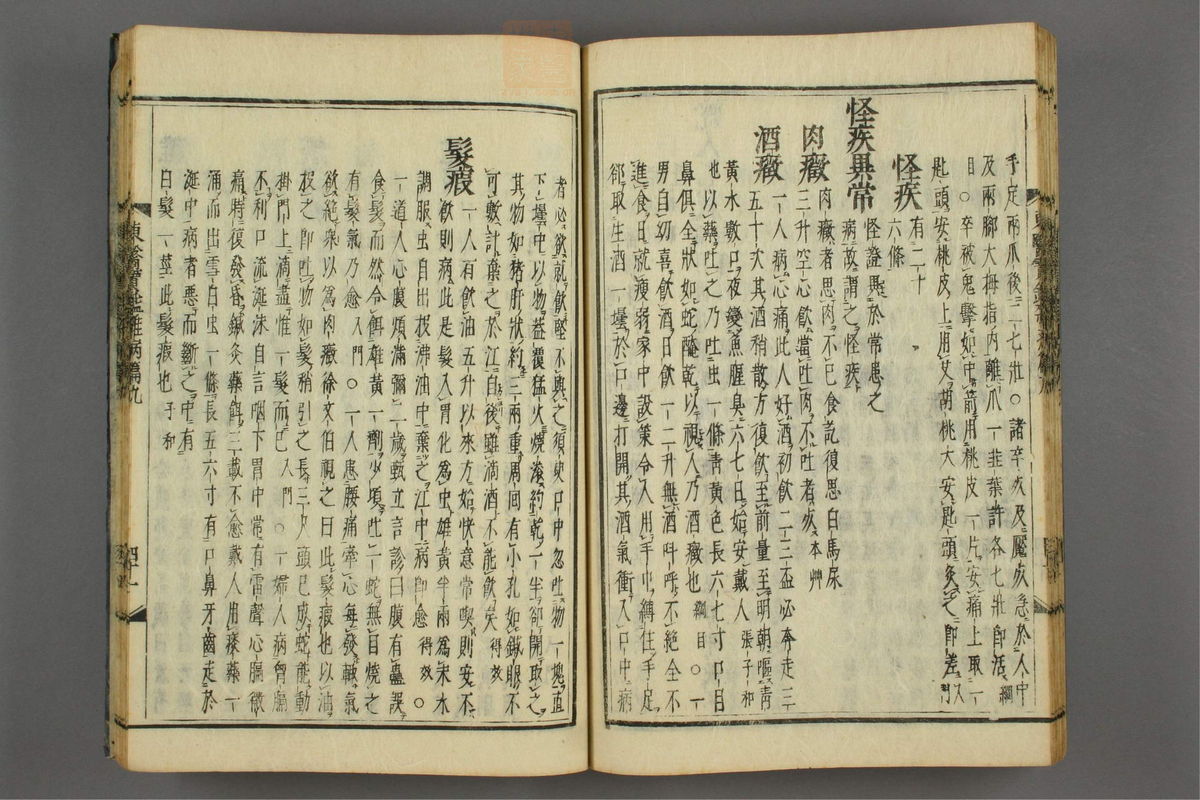 手足兩爪後二七壯○諸卒疾及魘疾急於人中
及兩腳大拇指內離爪一韭葉許各七壯卽活綱
目○卒被鬼擊如中箭用桃皮一片安痛上取一
匙頭安桃皮上用艾胡桃大安匙頭灸之卽差入門
怪疾
有二十
六條
怪疾異常
怪證異於常患之
病故謂之怪疾
肉癥
肉癥者思肉不已食訖復思白馬尿
三升空心飮當吐肉不吐者死本草
酒癥
一人病心痛此人好酒初飮二三盃必奔走三
五十次其酒稍散方復飮至前量至明朝嘔靑
黃水數口夜變魚腥臭六七日始安戴人張子和
也以藥吐之乃吐虫一條靑黃色長六七寸口目
鼻俱全狀如蛇醃乾以視人乃酒癥也綱目○一
男自幼喜飮酒日飮一二升無酒叫呼不絕全不
進食日就瘦弱家中設策令人用手巾縛住手足
却取生酒一壜於口邊打開其酒氣衝入口中病
者必欲就飮堅不與之須臾口中忽吐物一塊直
下壜中以物蓋覆猛火燒湊約乾一半却開取之
其物如猪肝狀約三兩重周回有小孔如鍼眼不
可數計棄之於江自後雖滴酒不能飮矣得效
髮瘕
一人有飮油五升以來方始快意常喫則安不
飮則病此是髮入胃化爲虫雄黃半兩爲末水
調服虫自出投沸油中棄之江中病卽愈得效○
一道人心腹煩滿彌二歲甄立言診曰腹有蠱誤
食髮而然令餌雄黃一劑少頃吐一蛇無目燒之
有髮氣乃愈入門○一人患腰痛牽心每發輒氣
欲絕衆以爲肉癥徐文伯視之曰此髮瘕也以油
投之卽吐物如髮稍引之長三尺頭已成蛇能動
掛門上滴盡惟一髮而已入門○一婦人病胷膈
不利口流涎沫自言咽下胃中常有雷聲心膈微
痛時復發昏鍼灸藥餌三載不愈戴人用痰藥一
涌而出雪白虫一條長五六寸有口鼻牙齒走於
涎中病者惡而斷之中有
白髮一莖此髮瘕也子和
東醫寶鑑雜病篇九
四十一